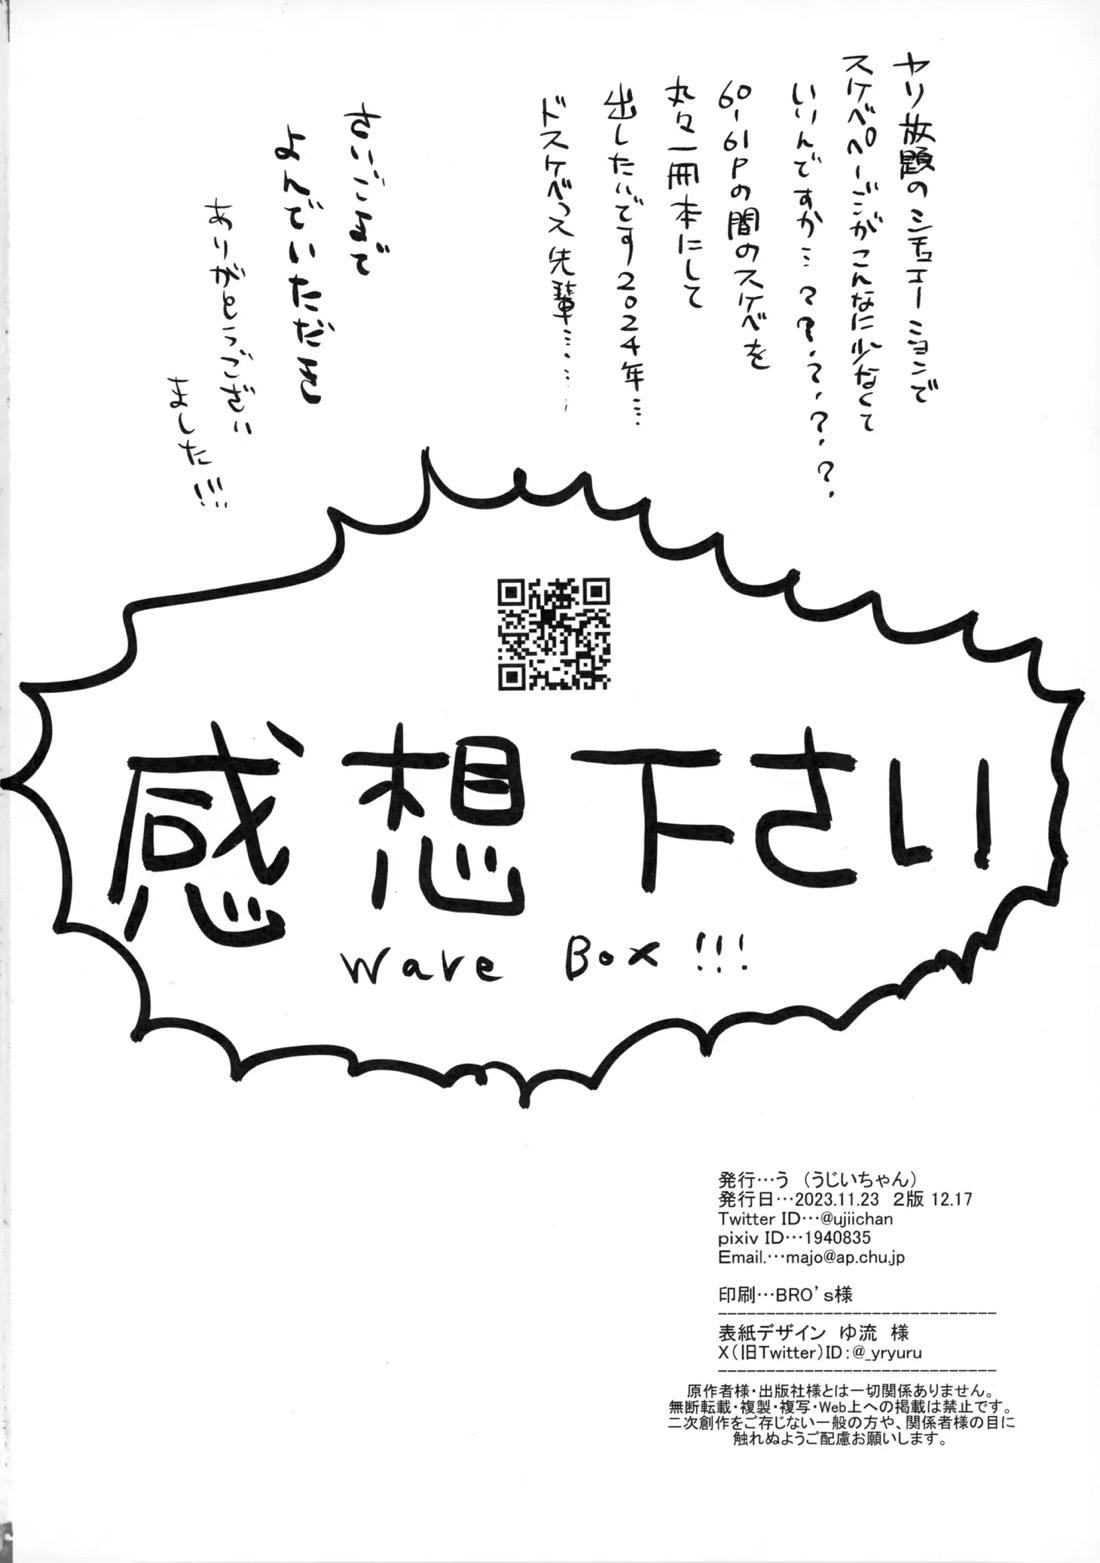 ヤリ放題のシチュエーションで
スケベページがこんなに少なくて
いいんですか…？？？？？？
60-61Pの間のスケベを
丸々一冊本にして
出したいです2024年…
ドスケベっス先輩………
さいごまで
よんでいただき
ありがとうござい
ました!!!
感想下さい
Wave Box!!!
発行…う（うじいちゃん）
発行日…2023.11.23 2版 12.17
Twitter ID…@ujiichan
pixiv ID…1940835
Email.…majo@ap.chu.jp
印刷…BRO's様
表紙デザイン ゆ流 様
X（旧Twitter）ID：@_yryuru
原作者様・出版社様とは一切関係ありません。
無断転載・複製・複写・Web上への掲載は禁止です。
二次創作をご存じない一般の方や、関係者様の目に
触れぬようご配慮お願いします。